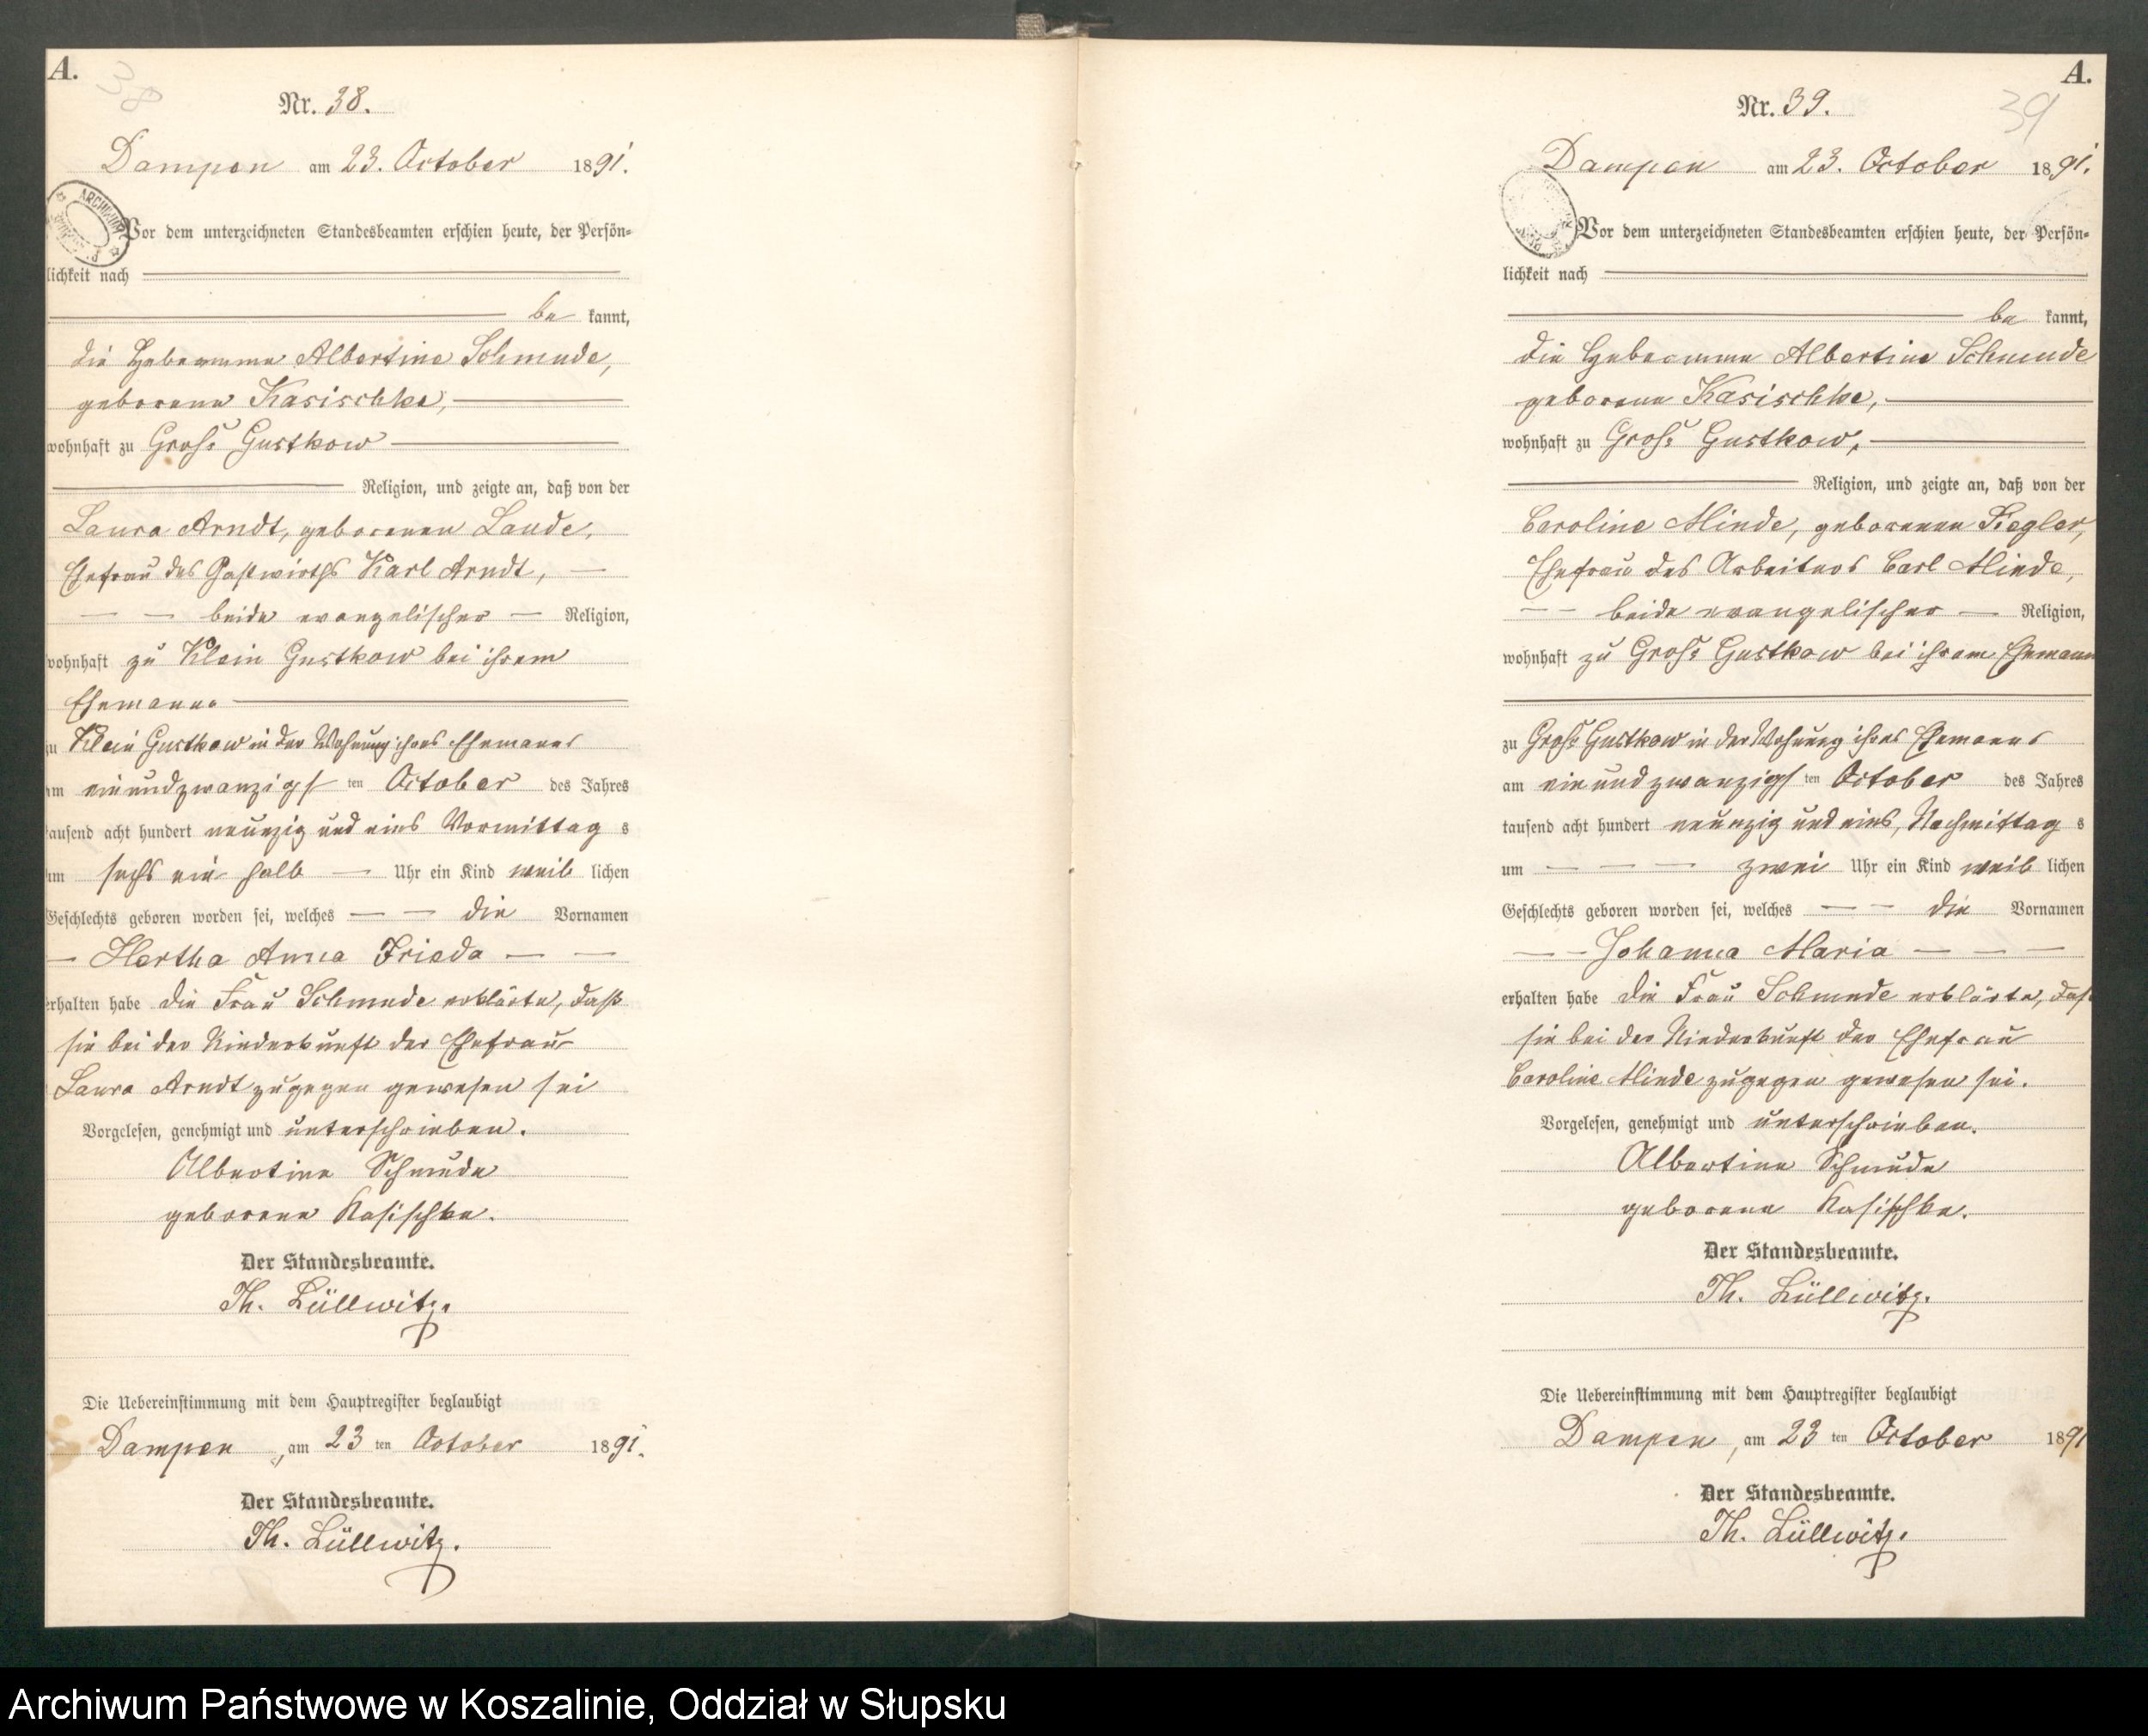 A.
38
Nr. 38.
Dampen am 23. October 1891.
Vor dem unterzeichneten Standesbeamten erschien heute, der Persön-
lichkeit nach
be kannt,
die Hebamme Albertine Schmude,
geborene Kasischke,
wohnhaft zu Groß Gustkow
Religion, und zeigte an, daß von der
Laura Arndt, geborenen Laude,
Ehefrau des Gastwirths Karl Arndt,
beide evangelischer Religion,
wohnhaft zu Klein Gustkow bei ihrem
Ehemanne
zu Klein Gustkow in der Wohnung ihres Ehemanns
am einundzwanzigsten October des Jahres
tausend acht hundert neunzig und eins Vormittags
um sechs ein halb Uhr ein Kind weiblichen
Geschlechts geboren worden sei, welches die Vornamen
Hertha Anna Frieda
erhalten habe die Frau Schmude erklärte, daß
sie bei der Niederkunft der Ehefrau
Laura Arndt zugegen gewesen sei
Vorgelesen, genehmigt und unterschrieben.
Albertine Schmude
geborene Kasischke.
Der Standesbeamte.
Th. Lüllwitz.
Die Uebereinstimmung mit dem Hauptregister beglaubigt
Dampen, am 23 ten October 1891.
Der Standesbeamte.
Th. Lüllwitz.
A.
39
Nr. 39.
Dampen am 23. October 1891.
Vor dem unterzeichneten Standesbeamten erschien heute, der Persön-
lichkeit nach
be kannt,
die Hebamme Albertine Schmude
geborene Kasischke,
wohnhaft zu Groß Gustkow,
Religion, und zeigte an, daß von der
Caroline Minde, geborenen Ziegler,
Ehefrau des Arbeiters Carl Minde,
beide evangelischer Religion,
wohnhaft zu Groß Gustkow bei ihrem Ehemann
zu Groß Gustkow in der Wohnung ihres Ehemanns
am einundzwanzigsten October des Jahres
tausend acht hundert neunzig und eins, Nachmittags
um zwei Uhr ein Kind weiblichen
Geschlechts geboren worden sei, welches die Vornamen
Johanna Maria
erhalten habe die Frau Schmude erklärte, daß
sie bei der Niederkunft der Ehefrau
Caroline Minde zugegen gewesen sei.
Vorgelesen, genehmigt und unterschrieben.
Albertine Schmude
geborene Kasischke.
Der Standesbeamte.
Th. Lüllwitz.
Die Uebereinstimmung mit dem Hauptregister beglaubigt
Dampen, am 23 ten October 1891
Der Standesbeamte.
Th. Lüllwitz.
Archiwum Państwowe w Koszalinie, Oddział w Słupsku